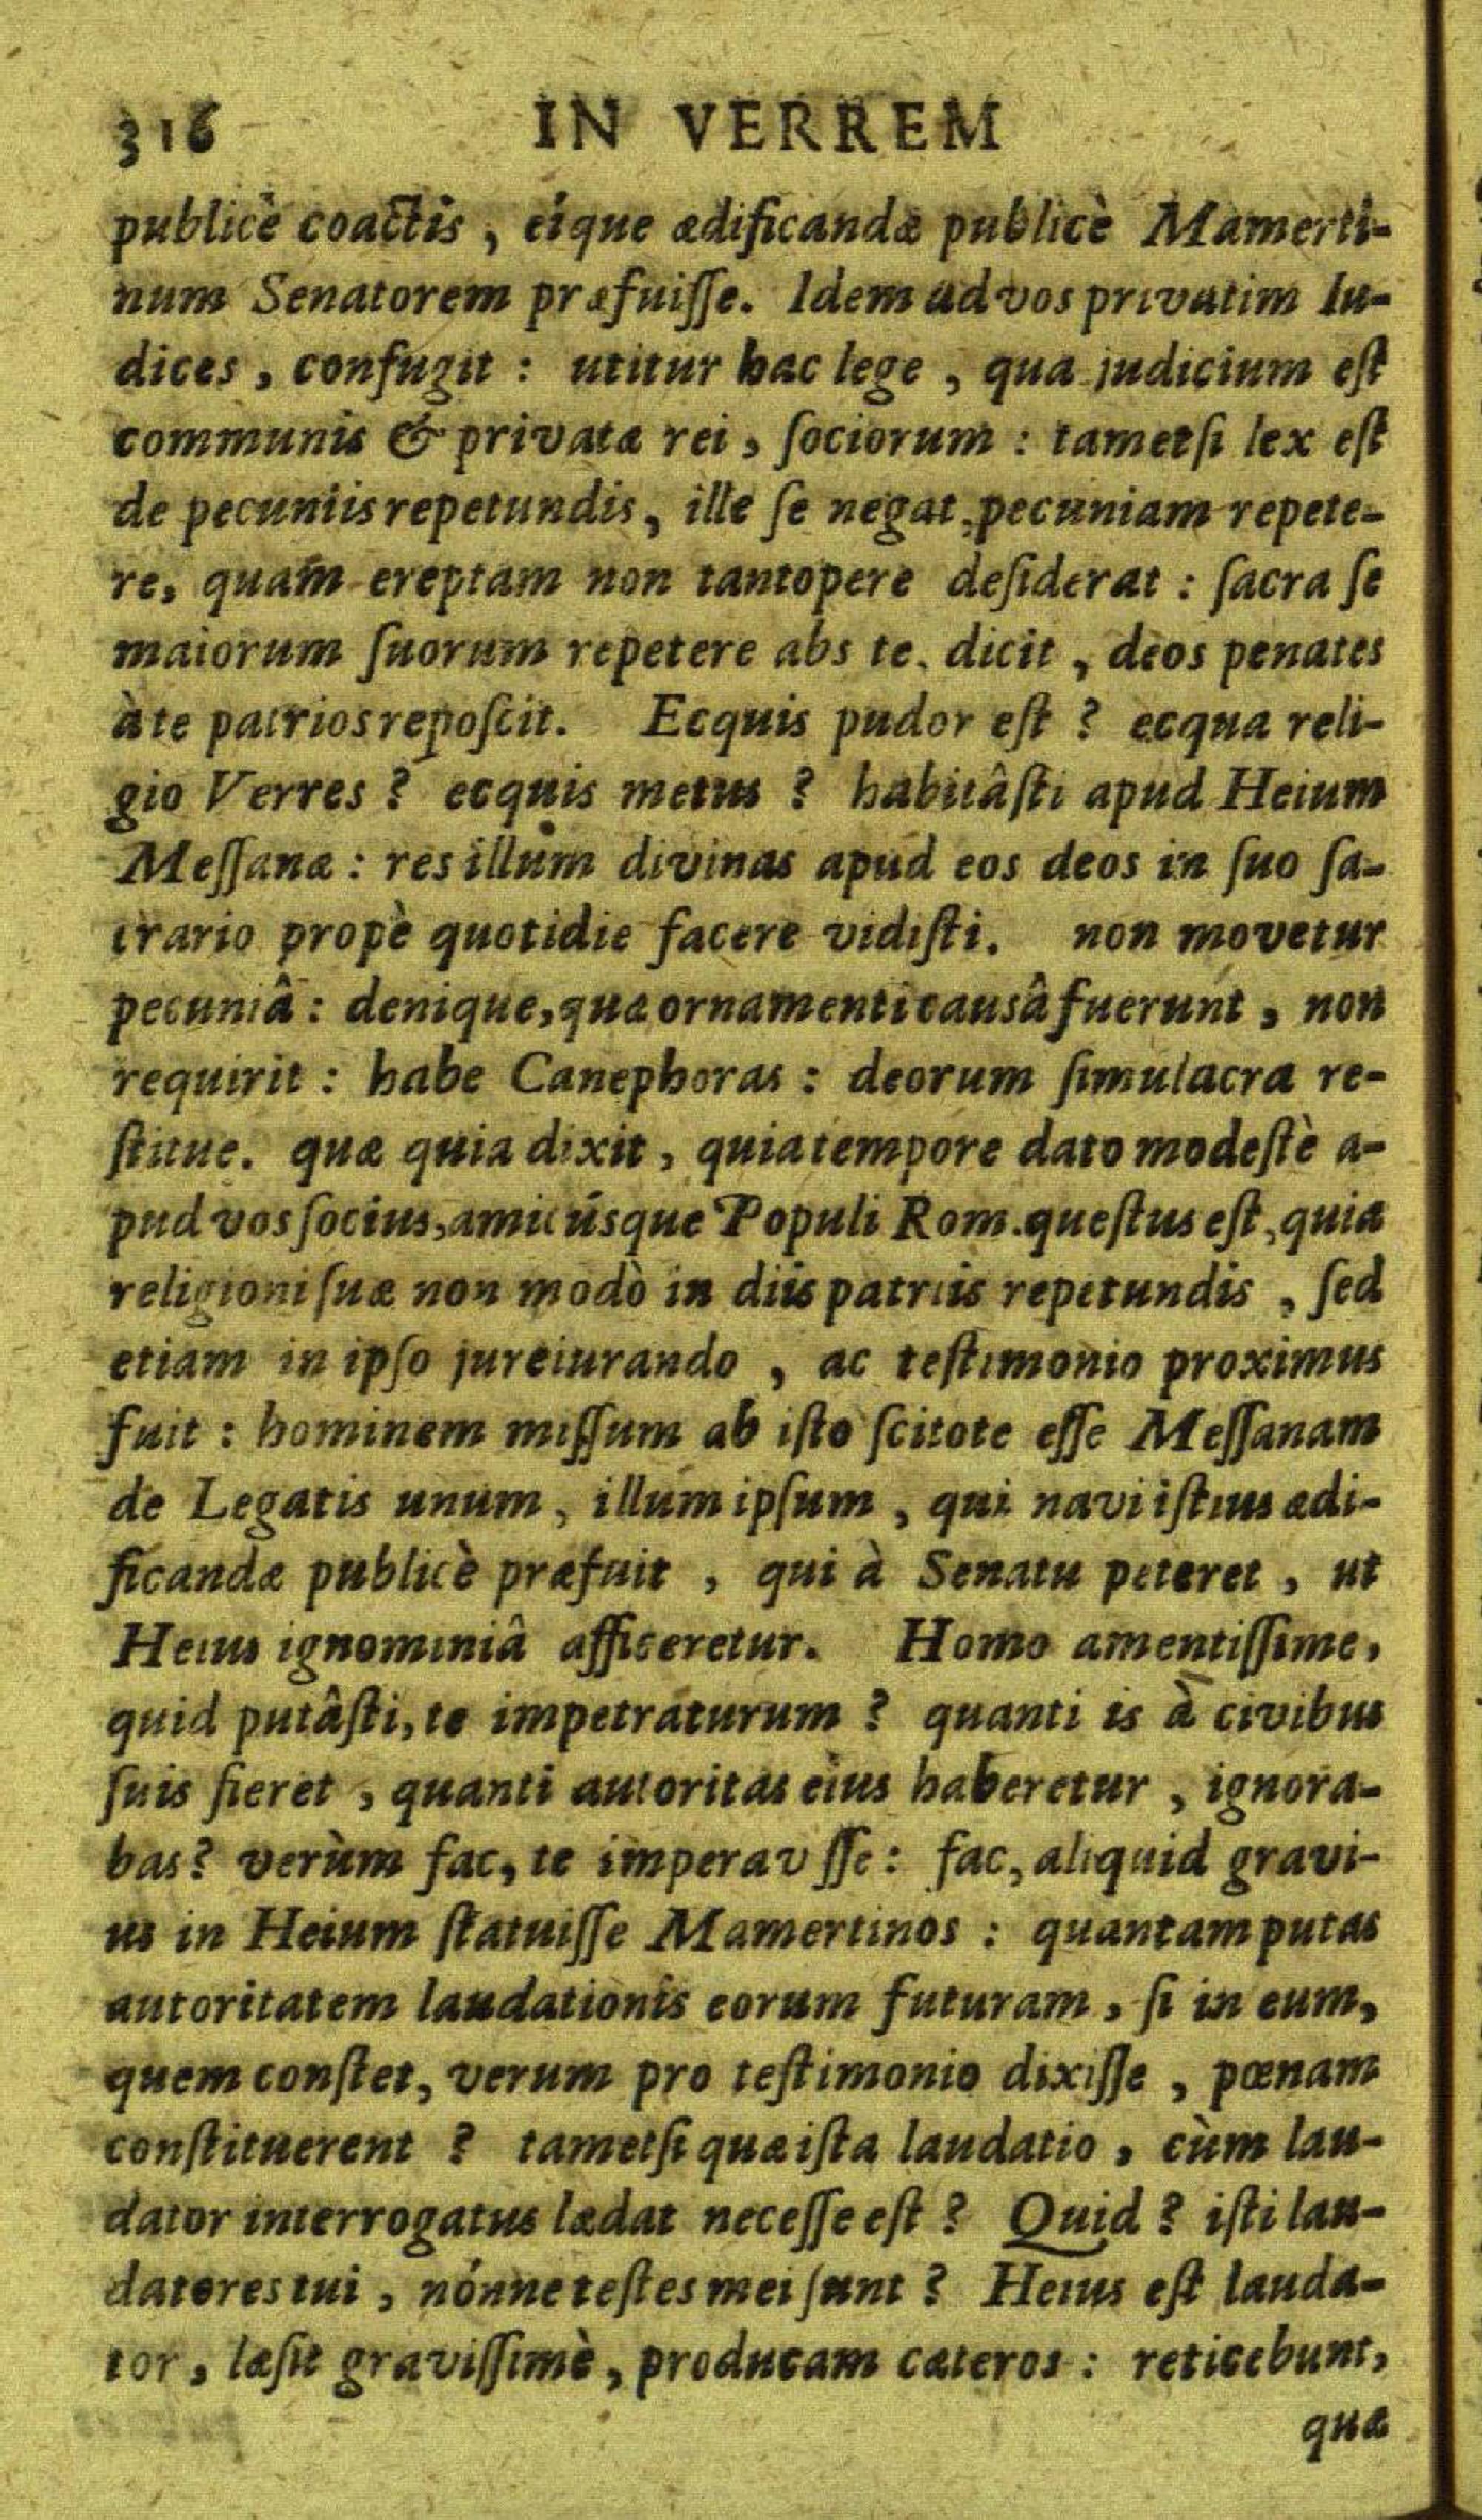 316 IN VERREM
publicè coactis, eíque ædificandæ publicè Mamerti-
num Senatorem præfuiſſe. Idem ad vos privatim Iu-
dices, confugit: utitur hac lege, qua judicium eſt
communis & privatæ rei, ſociorum: tametſi lex eſt
de pecuniis repetundis, ille ſe negat pecuniam repete-
re, quam ereptam non tantopere deſiderat: ſacra ſe
maiorum ſuorum repetere abs te. dicit, deos penates
à te patrios repoſcit. Ecquis pudor eſt? ecqua reli-
gio Verres? ecquis metus? habitâſti apud Heium
Meſſanæ: res illum divinas apud eos deos in ſuo ſa-
crario propè quotidie facere vidiſti. non movetur
pecuniâ: denique, quæ ornamenti causâ fuerunt, non
requirit: habe Canephoras: deorum ſimulacra re-
ſtitue. quæ quia dixit, quia tempore dato modeſtè a-
pud vos ſocius, amicúsque Populi Rom. queſtus eſt, quia
religioni ſuæ non modò in diis patriis repetundis, ſed
etiam in ipſo jureiurando, ac teſtimonio proximus
fuit: hominem miſſum ab iſto ſcitote eſſe Meſſanam
de Legatis unum, illum ipſum, qui navi iſtius ædi-
ficandæ publicè præfuit, qui à Senatu peteret, ut
Heius ignominiâ afficeretur. Homo amentiſſime,
quid putâſti, te impetraturum? quanti is à civibus
ſuis fieret, quanti autoritas eius haberetur, ignora-
bas? verùm fac, te imperav ſſe: fac, aliquid gravi-
us in Heium ſtatuiſſe Mamertinos: quantam putas
autoritatem laudationis eorum futuram, ſi in eum,
quem conſtet, verum pro teſtimonio dixiſſe, pœnam
conſtituerent? tametſi quæ iſta laudatio, cùm lau-
dator interrogatus lædat neceſſe eſt? Quid? iſti lau-
datores tui, nónne teſtes mei ſunt? Heius eſt lauda-
tor, læſit graviſſimè, producam cæteros: reticebunt,
quæ